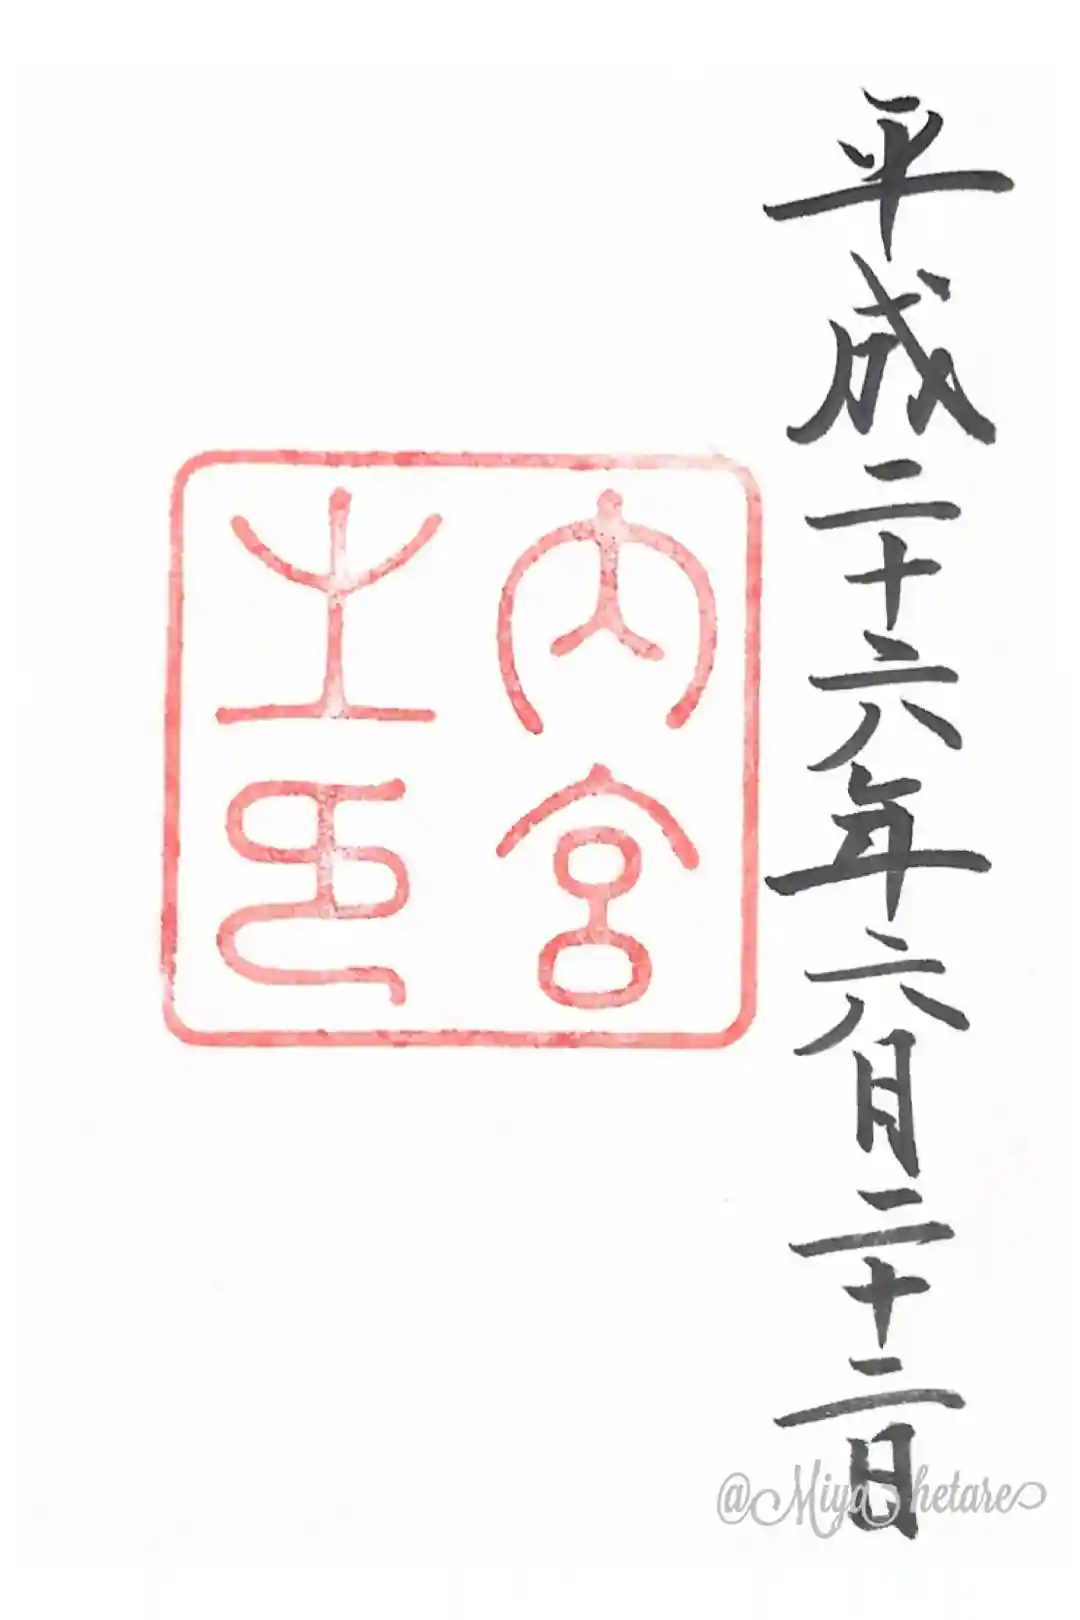 平成二十六年六月二十二日
内宮
之印
@Miya Shetare